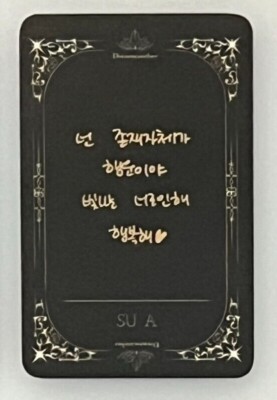 Dreamcatcher
넌 존재자체가
행운이야
빛나는 너로인해
행복해♥
SU A
Dreamcatcher